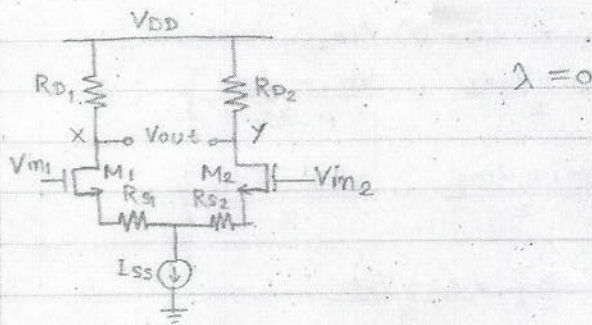 VDD
RD1
RD2
λ = 0
X
Vout
y
Vin1
M1
M2
Vin2
RS1
RS2
ISS